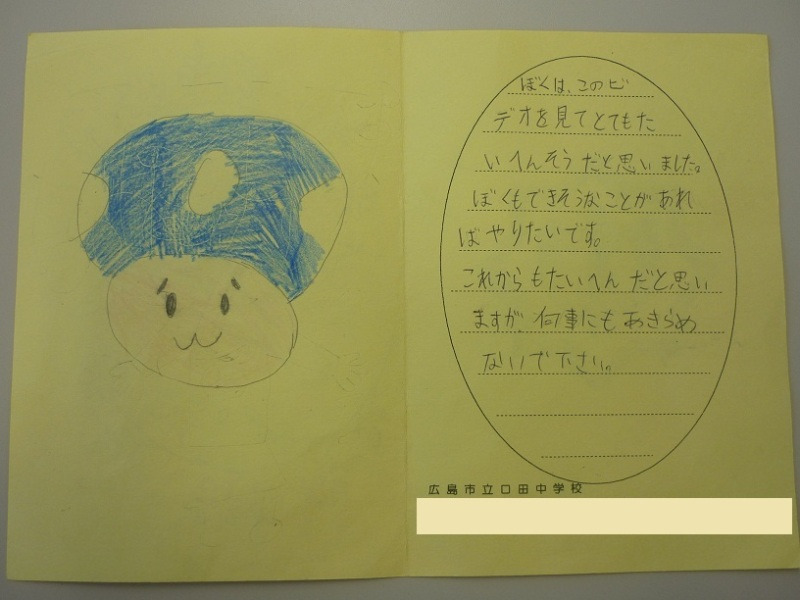 ぼくは、このビ
デオを見てとてもた
いへんそうだと思いました。
ぼくもできそうなことがあれ
ばやりたいです。
これからもたいへんだと思い
ますが、何事にもあきらめ
ないで下さい。
広島市立口田中学校